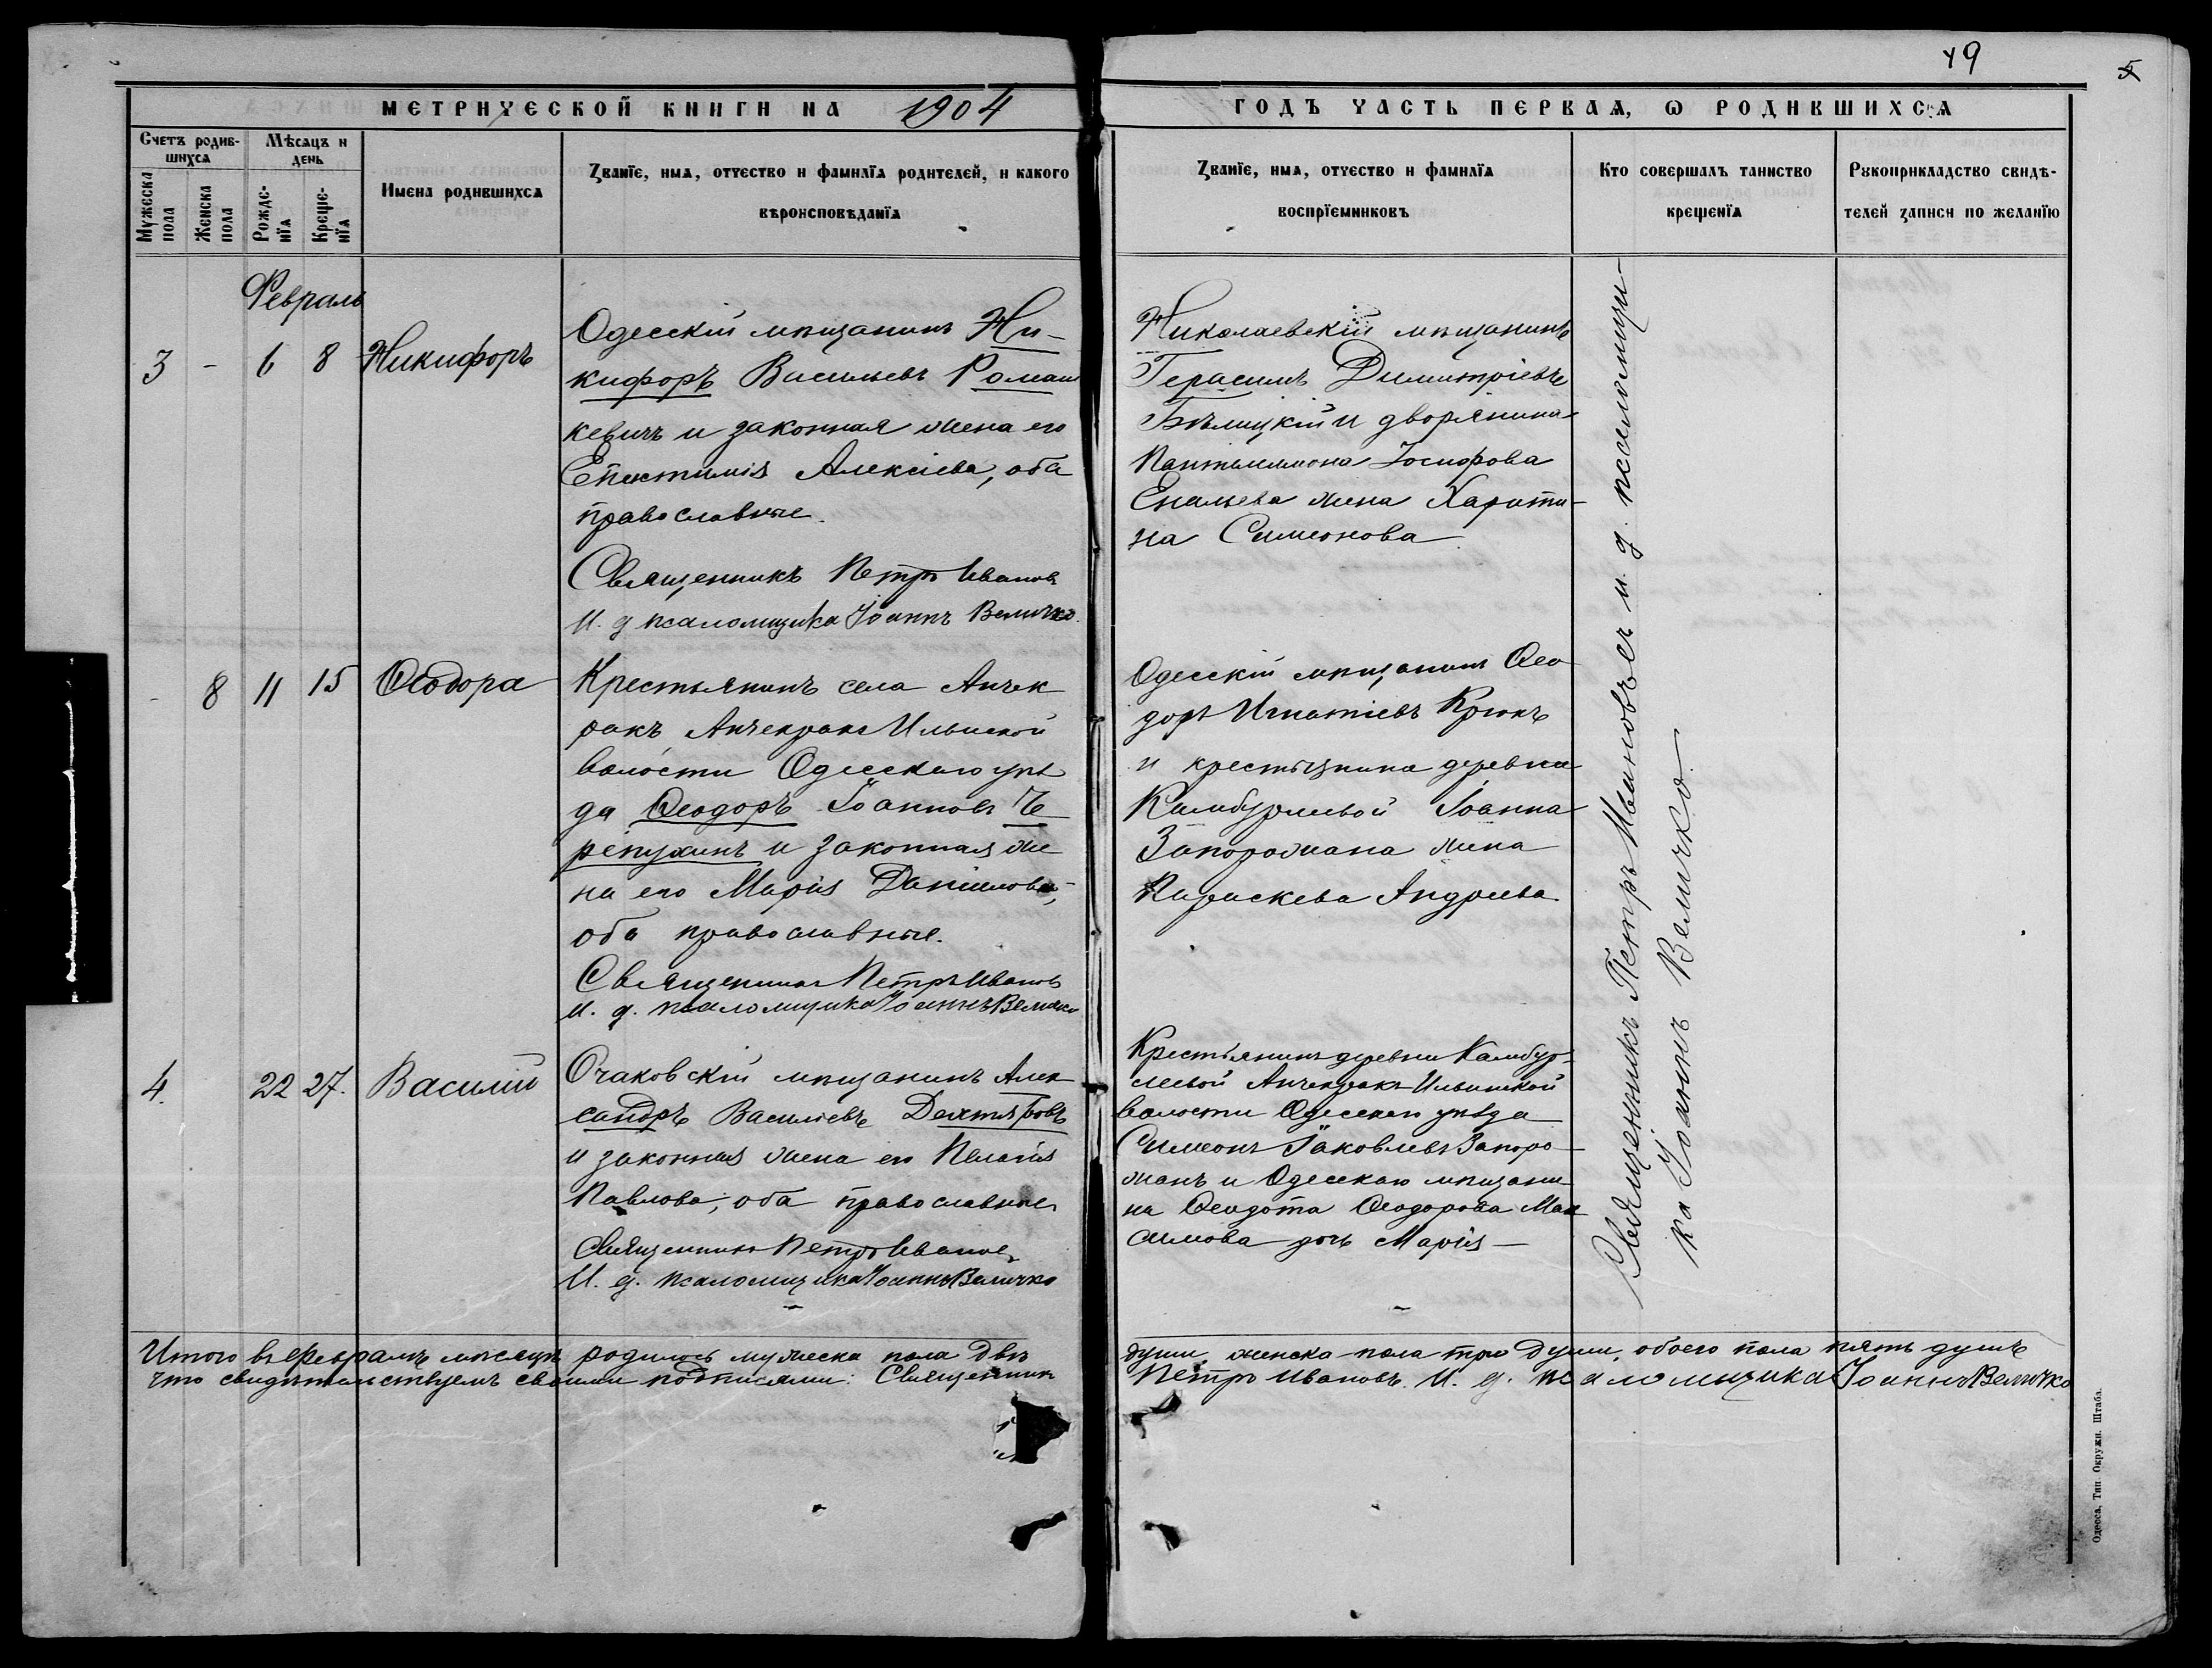 49
5
МЕТРИЧЕСКОЙ КНИГИ НА 1904
ГОДЪ ЧАСТЬ ПЕРВАЯ, Ѡ РОДИВШИХСЯ
Счетъ родив-
шихся
Мѣсяцъ и
день
Мужеска
пола
Женска
пола
Рожде-
нїя
Креще-
нїя
Имена родившихся
Званїе, имя, отчество и фамилїя родителей, и какого
вѣроисповѣданїя
Званїе, имя, отчество и фамилїя
воспрїемниковъ
Кто совершалъ таинство
крещенїя
Рукоприкладство свидѣ-
телей записи по желанїю
Февраль
3 - 6 8 Никифоръ
Одесскій мѣщанинъ Ни-
кифоръ Васильевъ Роман
кевичъ и законная жена его
Епистимія Алексіева, оба
православные.
Священникъ Петръ Ивановъ
И. д псаломщика Іоаннъ Величко.
Николаевскій мѣщанинъ
Герасимъ Димитріевъ
Бѣлицкій и дворянина
Пантелимона Іосифова
жена Харити-
на Симеонова
- 8 11 15 Ѳеодора
Крестьянинъ села Анчек
ракъ Анчекракъ Ильинской
волости Одесскаго уѣз
да Ѳеодоръ Іоанновъ Че
репухинъ и законная же
на его Марія Даніилова,
оба православные.
Священникъ Петръ Ивановъ
И. д. псаломщика Іоаннъ Величко
Одесскій мѣщанинъ Ѳео
доръ Игнатіевъ Крюкъ
и крестьянина деревни
Камбурлеевой Іоанна
Запорожана жена
Параскева Андреева
4. 22 27. Василій
Очаковскій мѣщанинъ Алек
сандръ Василіевъ Дехтяровъ
и законная жена его Пелагія
Павлова, оба православные
Священникъ Петръ Ивановъ
И. д. псаломщика Іоаннъ Величко
Крестьянинъ деревни Камбур
леевой Анчекракъ Ильинской
волости Одесскаго уѣзда
Симеонъ Іаковлевъ Запоро
жанъ и Одесскаго мѣщани
на Ѳеодота Ѳеодорова Мак
симова дочь Марія
Священникъ Петръ Ивановъ и. д. псаломщи-
ка Іоаннъ Величко.
Итого въ Февралѣ мѣсяцѣ родилось мужеска пола двѣ души, женска пола три души, обоего пола пять душъ
что свидѣтельствуемъ своими подписями: Священникъ Петръ Ивановъ. И. д. псаломщика Іоаннъ Величко
Одесса, Тип. Окружн. Штаба.